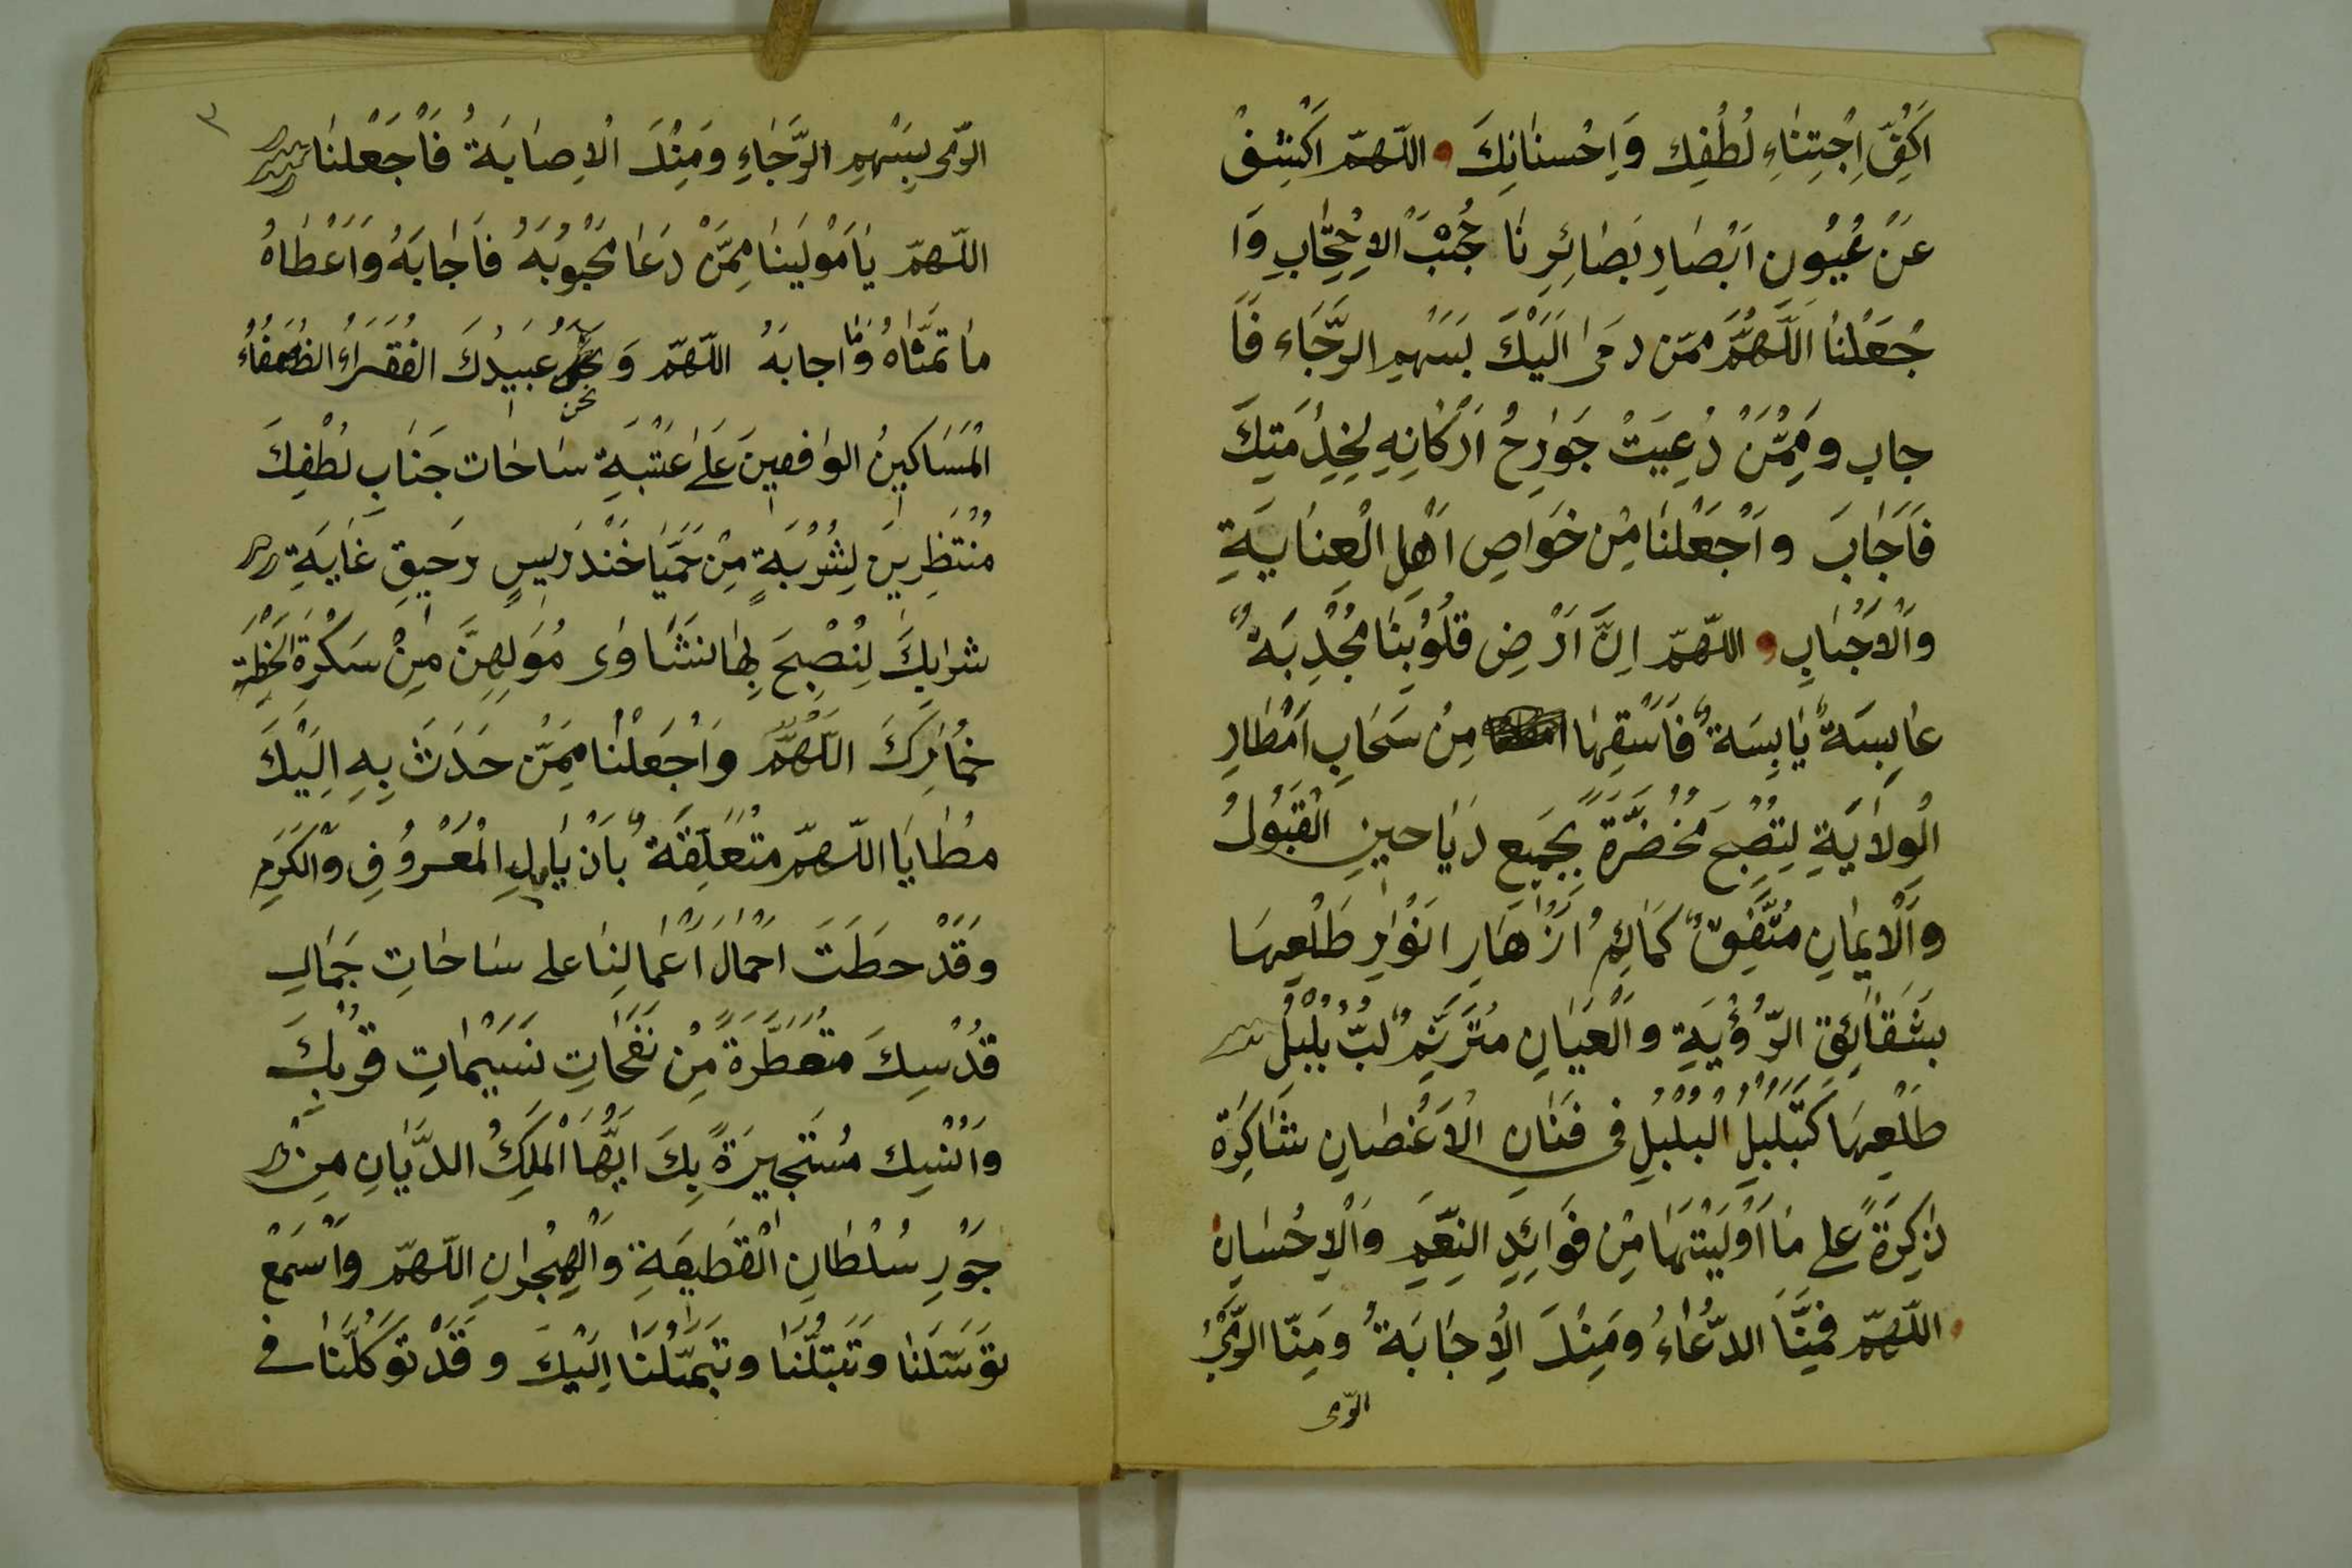 اَكُفِّ اِجْتِنَاءِ لُطْفِكَ وَاِحْسَانِكَ اللّهمّ اكْشِفْ
عَنْ عُيُونِ اَبْصَارِ بَصَائِرِنَا حُجُبَ الاِحْتِجَابِ وَا
جْعَلْنَا اَللّٰهُمَّ ممّن رمىٰ اِلَيْكَ بِسَهْمِ الرَّجَاءِ فَاَ
جاب ومِمَّنْ دُعِيَتْ جَوَارِحُ اَرْكَانِهِ لِخِدْمَتِكَ
فَاَجَابَ وَاَجْعَلْنَا مِنْ خَوَاصِ اَهْلِ الْعِنَايَةِ
وَالْاَحْبَابِ اللّهمّ اِنَّ اَرْضَ قُلُوبِنَا مُجْدِبَةٌ
عَابِسَةٌ يَابِسَةٌ فَاَسْقِهَا مِنْ سَحَابِ اَمْطَارِ
الْوِلَايَةِ لِتُصْبِحَ مُخْضَرَّةً بِجَمِيعِ رَيَاحِينِ الْقَبُولِ
وَالْاِيمَانِ كَمَائِمُ اَزْهَارِ اَنْوَارِ طَلْعِهَا
بِشَقَائِقِ الرُّؤْيَةِ وَالْعَيَانِ مُتَرَنِّمٌ لُبُّ بُلْبُلِ
طَلْعِهَا كَتَبَلْبُلِ الْبُلْبُلِ فى فَنَانِ الْاَغْصَانِ شَاكِرَةً
ذَاكِرَةً عَلى مَا اَوْلَيْتَهَا مِنْ فَوَائِدِ النِّعَمِ وَالْاِحْسَانِ
اللّهمّ فَمِنَّا الدُّعَاءُ وَمِنْكَ الْاِجَابَةُ وَمِنَّا الرَّمْىُ
الرّمى
٣
الرّمى بِسَهْمِ الرَّجَاءِ وَمِنْكَ الْاِصَابَةُ فَاَجْعَلْنَا
اللّهمّ يَا مَوْلَينَا مِمَّنْ دَعَا مَحْبُوبَهُ فَاَجَابَهُ وَاَعْطَاهُ
مَا تَمَنَّاهُ وَمَا اجابَهُ اللّهمّ وَ نحن عَبِيدُكَ الفُقَرَاءُ الضُعَفَاءُ
الْمَسَاكِينُ الوَاقِفِينَ عَلَى عَتَبَةِ سَاحَاتِ جَنَابِ لُطْفِكَ
مُنْتَظِرِينَ لِشُرْبَةٍ مِنْ حُمَيَّا خَنْدَرِيسِ رَحِيقِ غَايَةِ
شَرَابِكَ لِنُصْبِحَ بِهَا نَشَاوٰى مُوَلَّهِينَ مِنْ سَكْرَةِ
خُمَارِكَ اللّٰهُمَّ وَاَجْعَلْنَا مِمَّنْ حَدَثَ بِهِ اِلَيْكَ
مَطَايَا اللّهمّ مُتَعَلِّقَةٌ بِاَذْيَالِ الْمَعْرُوفِ وَالْكَرَمِ
وَقَدْ حَطَّتَ اَحْمَالَ اَعْمَالِنَا على سَاحَاتِ جَمَالِ
قُدْسِكَ مُتَعَطِّرَةً مِنْ نَفَحَاتِ نَسَيْمَاتِ قُرْبِكَ
وَاُنْسِكَ مُسْتَجِيرَةً بِكَ اَيُّهَا الْمَلِكُ الدَّيَّانِ مِنْ
جَوْرِ سُلْطَانِ الْقَطِيعَةِ وَالْهِجْرَانِ اللّهمّ وَاَسْمَعْ
تَوَسُّلَنَا وَتَبَتُّلَنَا وتَمَثُّلَنَا اِلَيْكَ وَقَدْ تَوَكَّلْنَا فى